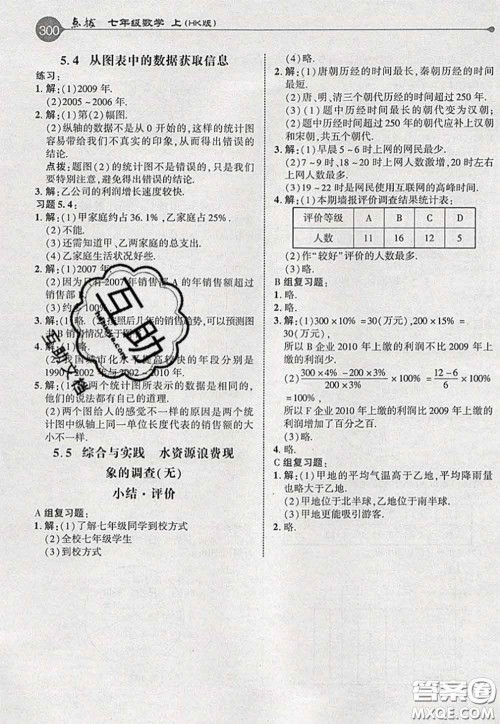 300 点拨 七年级数学 上(HK版)
5.4 从图表中的数据获取信息
练习:
1. 解:(1)2009 年.
(2)2005－2006 年.
2. 解:(1)第(2)幅图.
(2)纵轴的数据不是从 0 开始的,这样的统计图
容易带给我们不真实的印象,从而得出错误的
结论.
点拨:题图(2)的统计图不是错误的,只是我们
要特别注意,避免得出错误的结论.
3. 解:乙公司的利润增长速度较快.
习题 5.4:
1. 解:(1)甲家庭占 36.1%,乙家庭占
(2)不能.
(3)还需知道甲、乙两家庭的总支出.
(4)乙家庭生活状况好些.
2. 解:(1)2007 年
(2)
的年销售额超过
销售部
(3)约
100%
按照后几年的销售趋势,可以预测图
中 B 销
3. 解:
城市化水平提高较快的年段分别是
1990－2002 年与 2002－2010 年.
4. 解:(1)两个统计图所表示的数据是一致的,他
们的看法都有自己的道理.
(2)两个图给人的感觉不一样的原因是两个统
计图中纵轴上同一单位长度代表的销售额大小
不一样.
5. 略.
5.5 综合与实践 水资源浪费现
象的调查(无)
小结·评价
A 组复习题:
1. 解:(1)了解七年级同学到校方式
(2)全校七年级学生
(3)到校方式
(4)略.
2. 解:(1)唐朝历经的时间最长,秦朝历经的时间
最短.
(2)唐、明、清三个朝代历经的时间超过 250 年.
(3)题中历经时间最长的朝代变为汉朝;
题中历经时间超过 250 年的朝代应补上汉朝
和宋朝,共五个朝代.
3. 解:(1)早晨 5 时上网的网民最少.
(2)7－9 时,18－19 时上网人数激增,20－21 时
上网人数最多.
(3)19－22 时是网民使用互联网的高峰时间.
4. 解:(1)本期墙报评价调查结果统计表:
评价等级 A B C D
人数 11 16 12 5
(2)作“较好”评价的人数最多.
(3)略.
B 组复习题:
1. 略.
2. 略.
3. 解:(1)300×10%＝30(万元),200×15%＝
30(万元),
所以 B 企业 2010 年上缴的利润比 2009 年上缴
的利润增加得不一样多.
(2)300×4%－200×3%/200×3%＝12－6/6＝
100%.
所以 F 企业 2010 年上缴的利润比 2009 年上缴
的利润增加了百分之百.
C 组复习题:
1. 解:(1)甲地的平均气温高于乙地,且甲地的变
化幅度大于乙地.
(2)甲地位于北半球,乙地位于南半球.
(3)甲地更能吸引游客.
2. 略.
互助
互助文档
答案圈
MXQE.COM